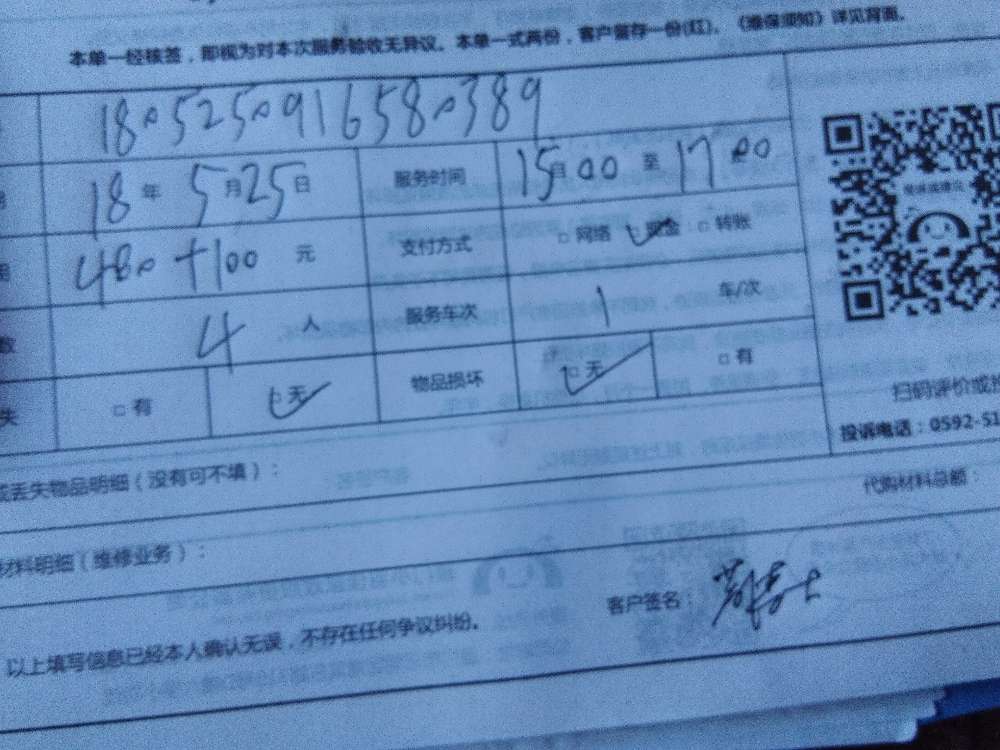 本单一经核签，即视为对本次服务验收无异议。本单一式两份，客户留存一份(红)。《维保须知》详见背面。
1805250916580389
18年 5月25日 服务时间 15 00 至 17 00
480+100 元 支付方式 □ 网络 □ 现金 □ 转账
数 4 人 服务车次 1 车/次
失 □ 有 □ 无 物品损坏 □ 无 □ 有
扫码评价或
投诉电话：0592-51
丢失物品明细（没有可不填）：
代购材料总额：
材料明细（维修业务）：
客户签名：
以上填写信息已经本人确认无误，不存在任何争议纠纷。